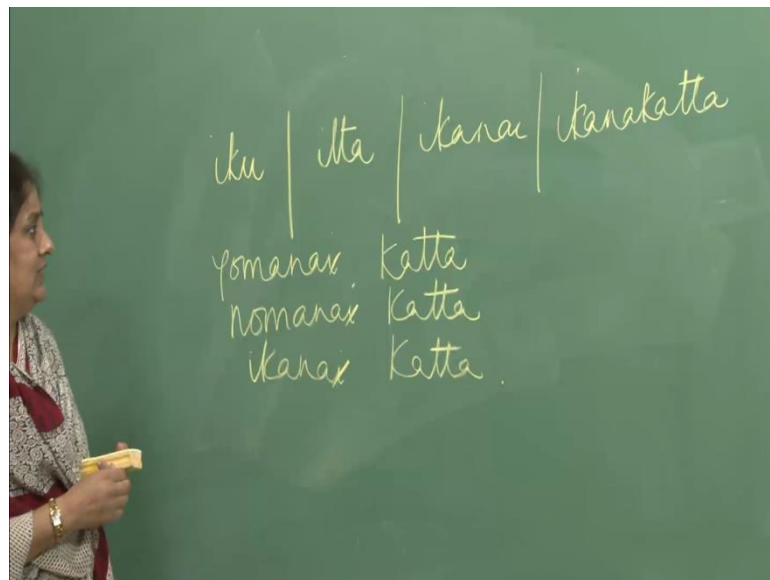 iku | itta | ikanai | ikanakatta
yomanai katta
nomanai katta
ikanai katta.